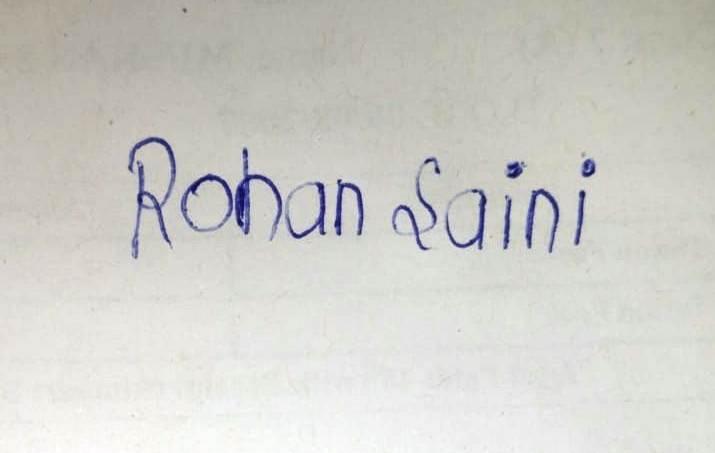 Rohan Saini